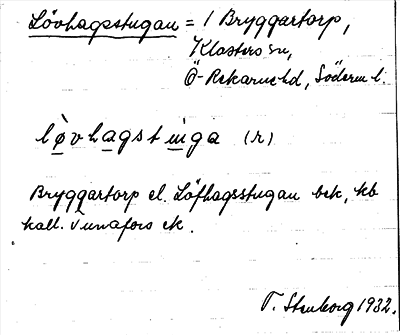 Lövhagsstugan = 1 Bryggartorp,
Klosters sn,
Ö-Rekarne hd, Söderm l.
lövhagstuga (r)
Bryggartorp el. Löfhagsstugan bek, kb
kall. Tunafors ek.
T. Stenborg 1932.